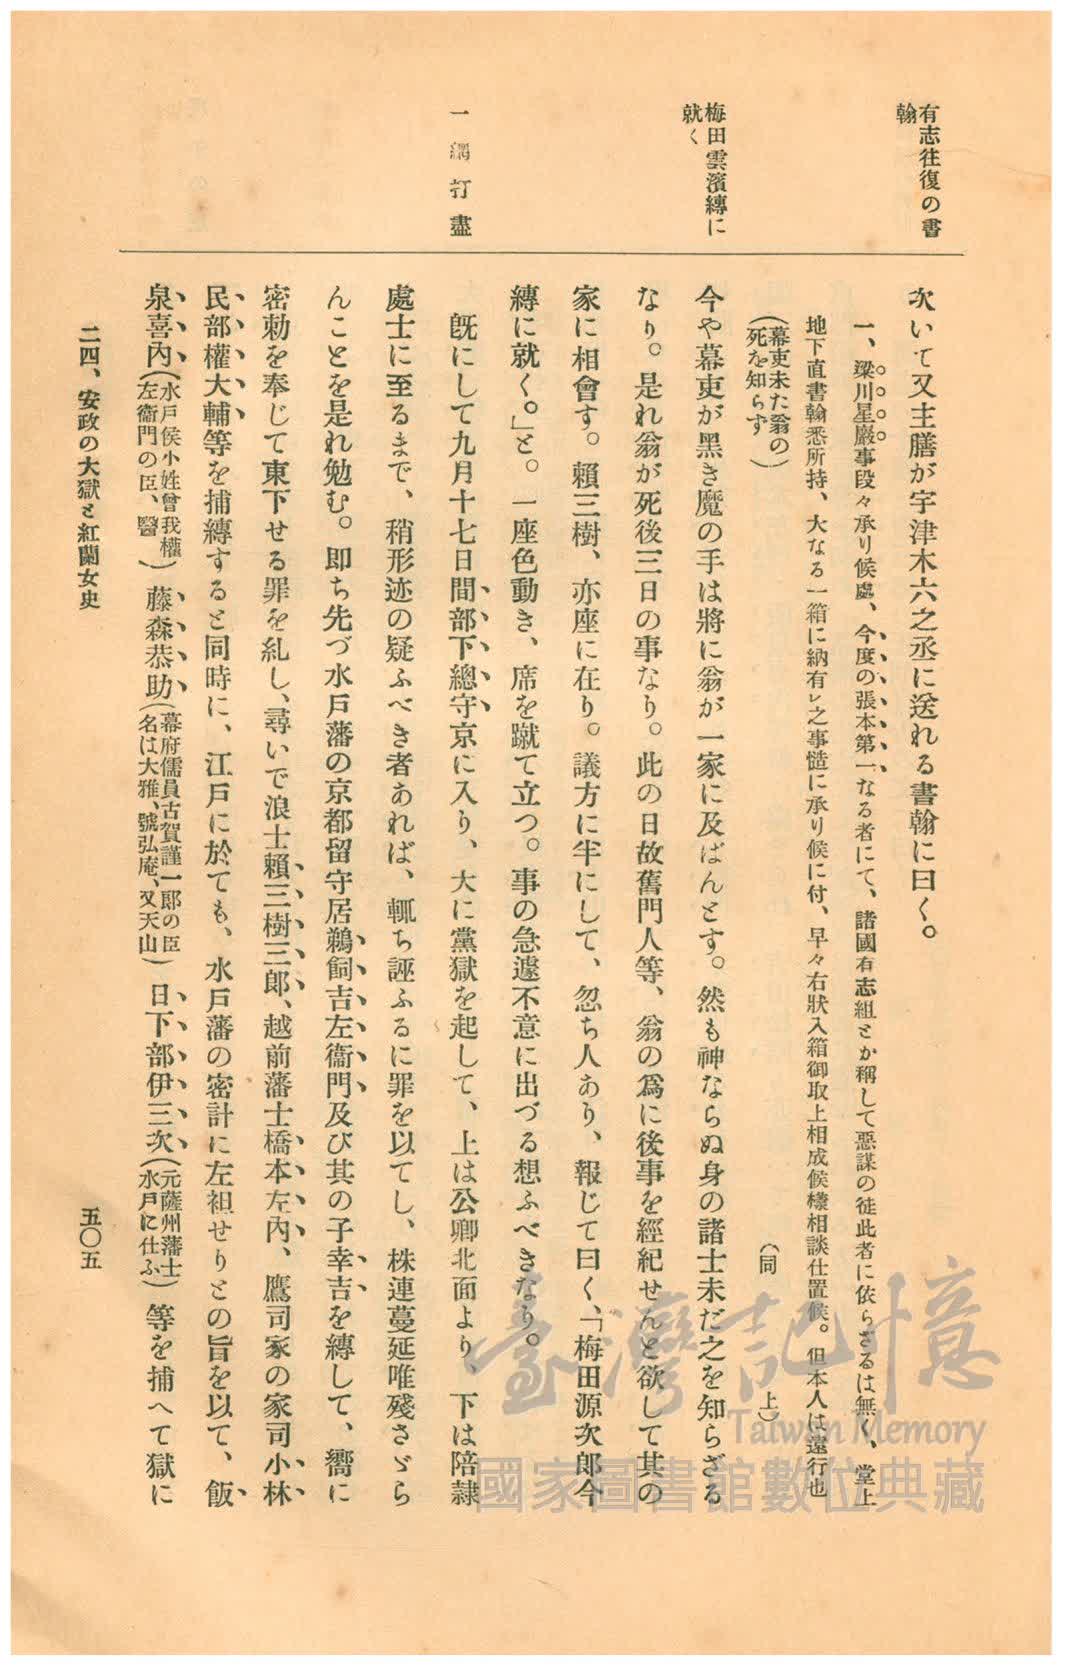 有志往復の書
翰
梅田雲濱縛に
就く
一網打盡
次いで又主膳が宇津木六之丞に送れる書翰に曰く。
一、梁川星巖事段々承り候處、今度の張本第一なる者にて、諸國有志組とか稱して惡謀の徒此者に依らざるは無く、堂上
地下直書翰悉所持、大なる一箱に納有レ之事慥に承り候に付、早々右狀入箱御取上相成候樣相談仕置候。但本人は遠行也
(幕吏未た翁の
死を知らず)
(同上)
今や幕吏が黑き魔の手は將に翁が一家に及ばんとす。然も神ならぬ身の諸士未だ之を知らざる
なり。是れ翁が死後三日の事なり。此の日故舊門人等、翁の爲に後事を經紀せんと欲して其の
家に相會す。賴三樹、亦座に在り。議方に半にして、忽ち人あり、報じて曰く、「梅田源次郎今
縛に就く。」と。一座色動き、席を蹴て立つ。事の急遽不意に出づる想ふべきなり。
既にして九月十七日間部下總守京に入り、大に黨獄を起して、上は公卿北面より、下は陪隷
處士に至るまで、稍形迹の疑ふべき者あれば、輒ち誣ふるに罪を以てし、株連蔓延唯殘さゞら
んことを是れ勉む。卽ち先づ水戶藩の京都留守居鵜飼吉左衞門及び其の子幸吉を縛して、嚮に
密勅を奉じて東下せる罪を糺し、尋いで浪士賴三樹三郎、越前藩士橋本左內、鷹司家の家司小林
民部權大輔等を捕縛すると同時に、江戶に於ても、水戶藩の密計に左袒せりとの旨を以て、飯
泉喜內(水戶侯小姓曾我權左衞門の臣、醫)藤森恭助(幕府儒員古賀謹一郎の臣名は大雅、號弘庵、又天山)日下部伊三次(元薩州藩士水戶に仕ふ)等を捕へて獄に
二四、安政の大獄と紅蘭女史
五〇五
臺灣記憶
Taiwan Memory
國家圖書館數位典藏